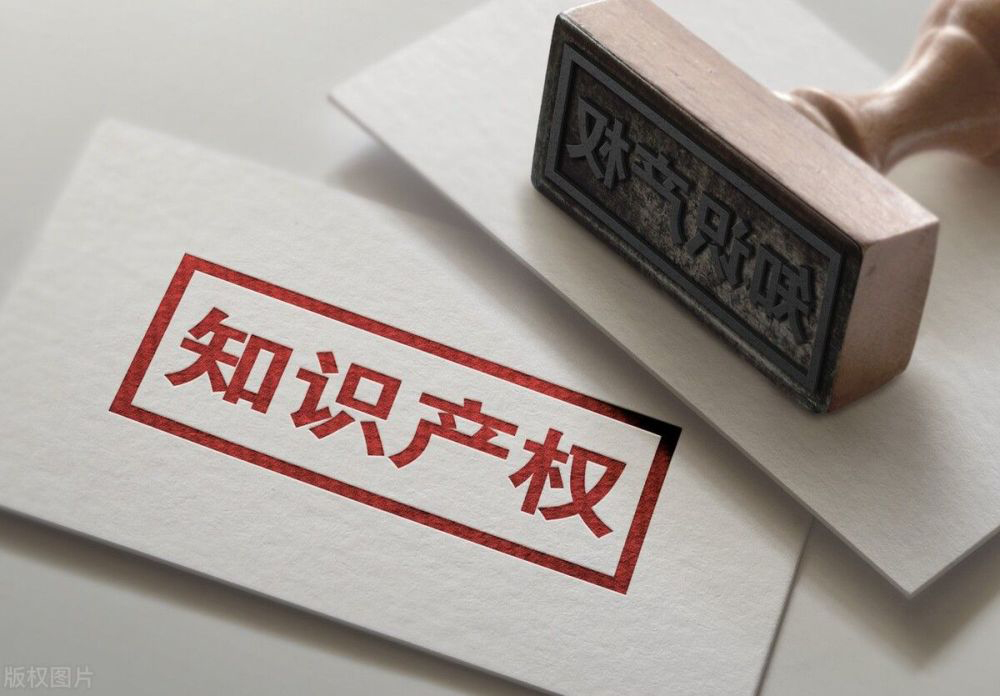 知识产权
知识产权
版权图片